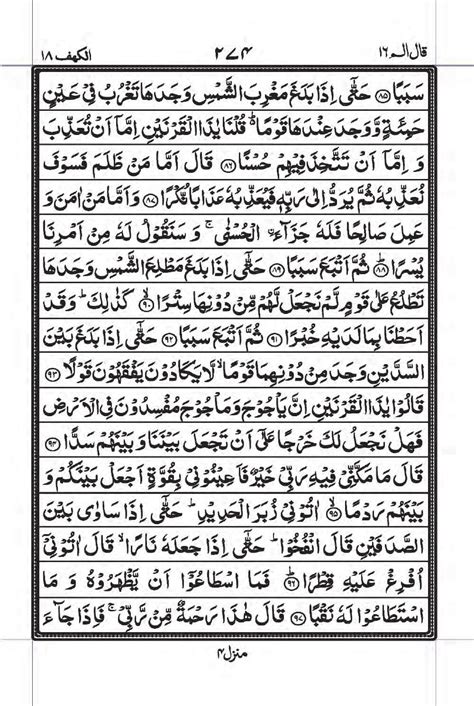 قال الم ١٦ ٢٧٤ الكهف ١٨
سَبَبًا ﴿٨٥﴾ حَتّٰۤى اِذَا بَلَغَ مَغْرِبَ الشَّمْسِ وَجَدَهَا تَغْرُبُ فِىْ عَيْنٍ
حَمِئَةٍ وَّ وَجَدَ عِنْدَهَا قَوْمًا ۬ؕ قُلْنَا يٰذَا الْقَرْنَيْنِ اِمَّاۤ اَنْ تُعَذِّبَ
وَ اِمَّاۤ اَنْ تَتَّخِذَ فِيْهِمْ حُسْنًا ﴿٨٦﴾ قَالَ اَمَّا مَنْ ظَلَمَ فَسَوْفَ
نُعَذِّبُهٗ ثُمَّ يُرَدُّ اِلٰى رَبِّهٖ فَيُعَذِّبُهٗ عَذَابًا نُّكْرًا ﴿٨٧﴾ وَ اَمَّا مَنْ اٰمَنَ وَ
عَمِلَ صَالِحًا فَلَهٗ جَزَآءَ ۨالْحُسْنٰى ۚ وَ سَنَقُوْلُ لَهٗ مِنْ اَمْرِنَا
يُسْرًا ﴿٨٨﴾ ثُمَّ اَتْبَعَ سَبَبًا ﴿٨٩﴾ حَتّٰۤى اِذَا بَلَغَ مَطْلِعَ الشَّمْسِ وَجَدَهَا
تَطْلُعُ عَلٰى قَوْمٍ لَّمْ نَجْعَلْ لَّهُمْ مِّنْ دُوْنِهَا سِتْرًا ﴿٩٠﴾ كَذٰلِكَ ؕ وَ قَدْ
اَحَطْنَا بِمَا لَدَيْهِ خُبْرًا ﴿٩١﴾ ثُمَّ اَتْبَعَ سَبَبًا ﴿٩٢﴾ حَتّٰۤى اِذَا بَلَغَ بَيْنَ
السَّدَّيْنِ وَجَدَ مِنْ دُوْنِهِمَا قَوْمًا ۙ لَّا يَكَادُوْنَ يَفْقَهُوْنَ قَوْلًا ﴿٩٣﴾
قَالُوْا يٰذَا الْقَرْنَيْنِ اِنَّ يَاْجُوْجَ وَ مَاْجُوْجَ مُفْسِدُوْنَ فِى الْاَرْضِ
فَهَلْ نَجْعَلُ لَكَ خَرْجًا عَلٰۤى اَنْ تَجْعَلَ بَيْنَنَا وَ بَيْنَهُمْ سَدًّا ﴿٩٤﴾
قَالَ مَا مَكَّنِّىْ فِيْهِ رَبِّىْ خَيْرٌ فَاَعِيْنُوْنِىْ بِقُوَّةٍ اَجْعَلْ بَيْنَكُمْ وَ
بَيْنَهُمْ رَدْمًا ﴿٩٥﴾ اٰتُوْنِىْ زُبَرَ الْحَدِيْدِ ؕ حَتّٰۤى اِذَا سَاوٰى بَيْنَ
الصَّدَفَيْنِ قَالَ انْفُخُوْا ؕ حَتّٰۤى اِذَا جَعَلَهٗ نَارًا ۙ قَالَ اٰتُوْنِىْۤ
اُفْرِغْ عَلَيْهِ قِطْرًا ﴿٩٦﴾ فَمَا اسْطَاعُوْۤا اَنْ يَّظْهَرُوْهُ وَ مَا
اسْتَطَاعُوْا لَهٗ نَقْبًا ﴿٩٧﴾ قَالَ هٰذَا رَحْمَةٌ مِّنْ رَّبِّىْ ۚ فَاِذَا جَآءَ
منزل ٤